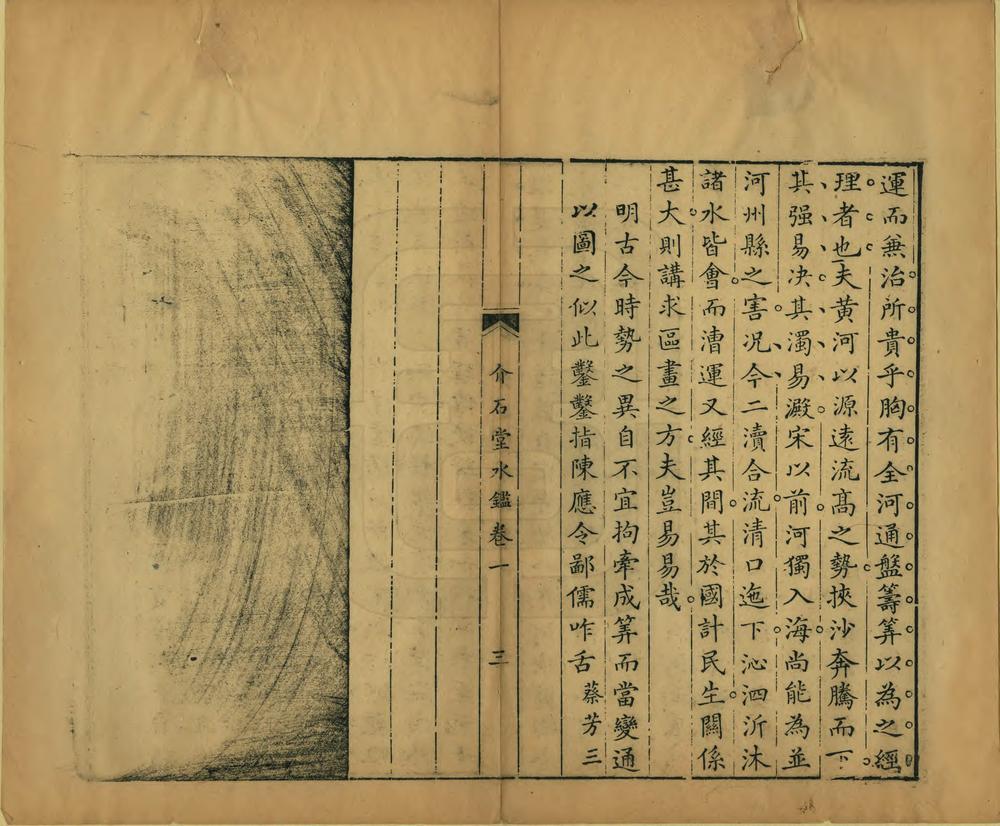 運而兼治所貴乎胸有全河通盤籌筭以為之經
理者也夫黄河以源遠流髙之勢挾沙奔騰而下
其强易决其濁易澱宋以前河獨入海尚能為並
河州縣之害况今二瀆合流清口迤下沁泗沂沭
諸水皆㑹而漕運又經其間其於國計民生關係
甚大則講求區畫之方夫豈易易哉
明古今時勢之異自不宜拘牽成筭而當變通
以圖之似此鑿鑿指陳應令鄙儒咋舌 蔡芳三
介石堂水鑑卷一 三